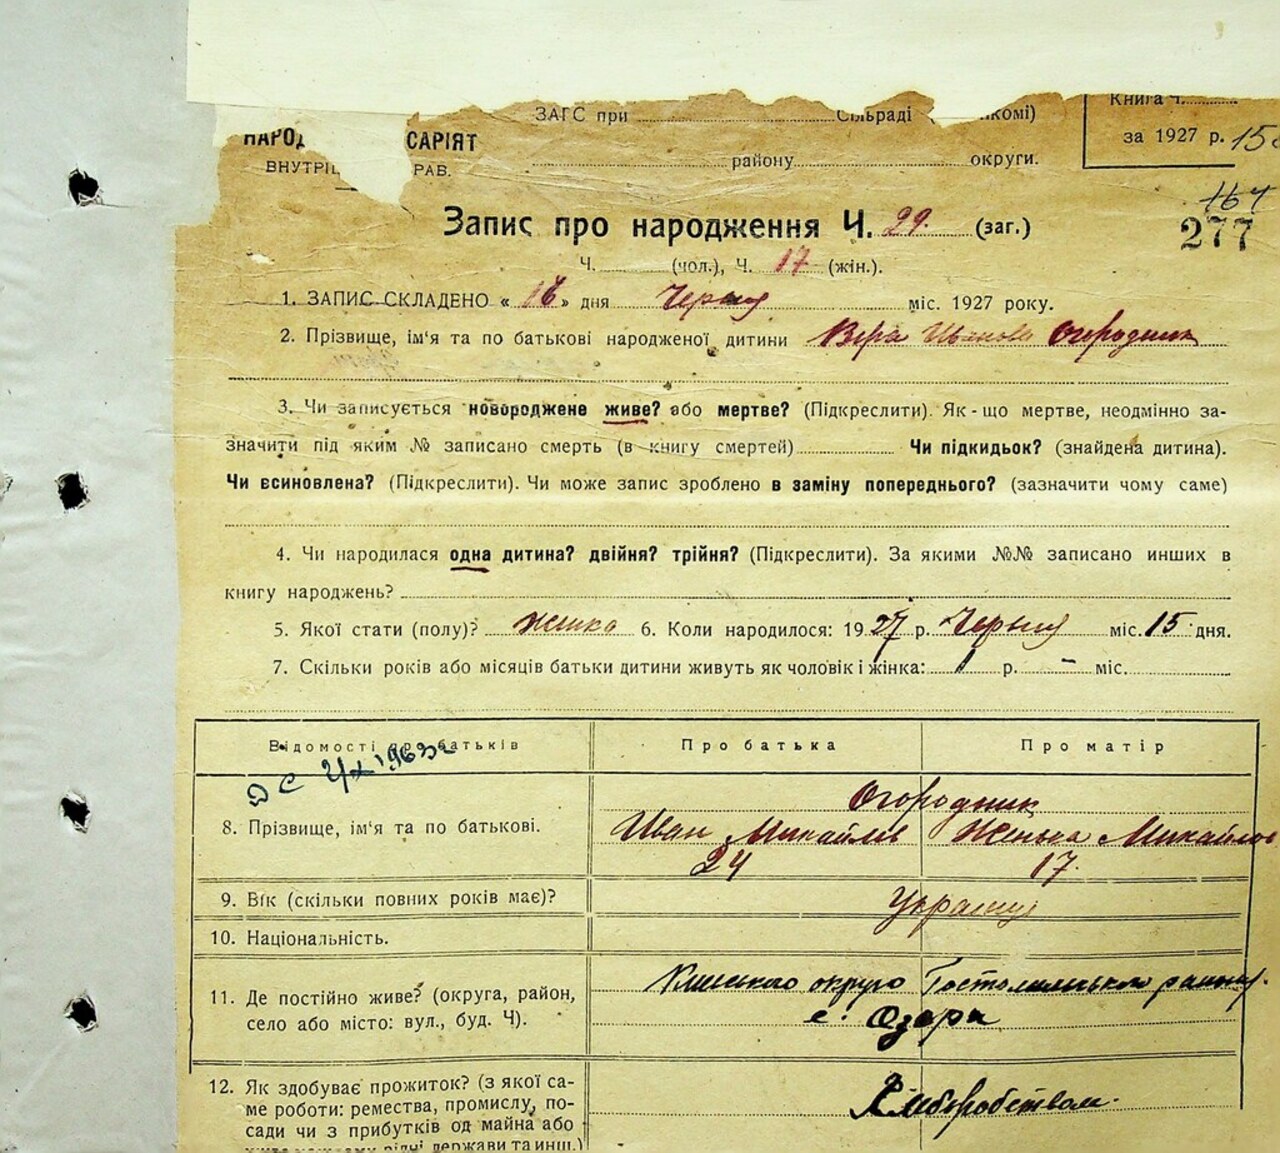 ЗАГС при Сільраді
Книга Ч.
НАРОД САРІЯТ
за 1927 р. 15
ВНУТРІ РАВ.
району округи.
164
277
Запис про народження Ч. 29. (заг.)
Ч. (чол.), Ч. 17 (жін.).
1. ЗАПИС СКЛАДЕНО « 16 » дня Червня міс. 1927 року.
2. Прізвище, ім'я та по батькові народженої дитини Віра Иванова Огородник
3. Чи записується новороджене живе? або мертве? (Підкреслити). Як-що мертве, неодмінно за-
значити під яким № записано смерть (в книгу смертей) Чи підкидьок? (знайдена дитина).
Чи всиновлена? (Підкреслити). Чи може запис зроблено в заміну попереднього? (зазначити чому саме)
4. Чи народилася одна дитина? двійня? трійня? (Підкреслити). За якими №№ записано инших в
книгу народжень?
5. Якої стати (полу)? жінка 6. Коли народилося: 1927 р. Червня міс. 15 дня.
7. Скільки років або місяців батьки дитини живуть як чоловік і жінка: 1 р. - міс.
Відомості про батьків Про батька Про матір
1963
Огородник
8. Прізвище, ім'я та по батькові. Иван Михайлів Женька Михайлов
24 17
9. Вік (скільки повних років має)?
Українці
10. Національність.
11. Де постійно живе? (округа, район, село або місто: вул., буд. Ч). Київського округу Гостомельського району
с. Озери
12. Як здобуває прожиток? (з якої са-
ме роботи: ремества, промислу, по- Хліборобством.
сади чи з прибутків од майна або
рідні держави та инш.)